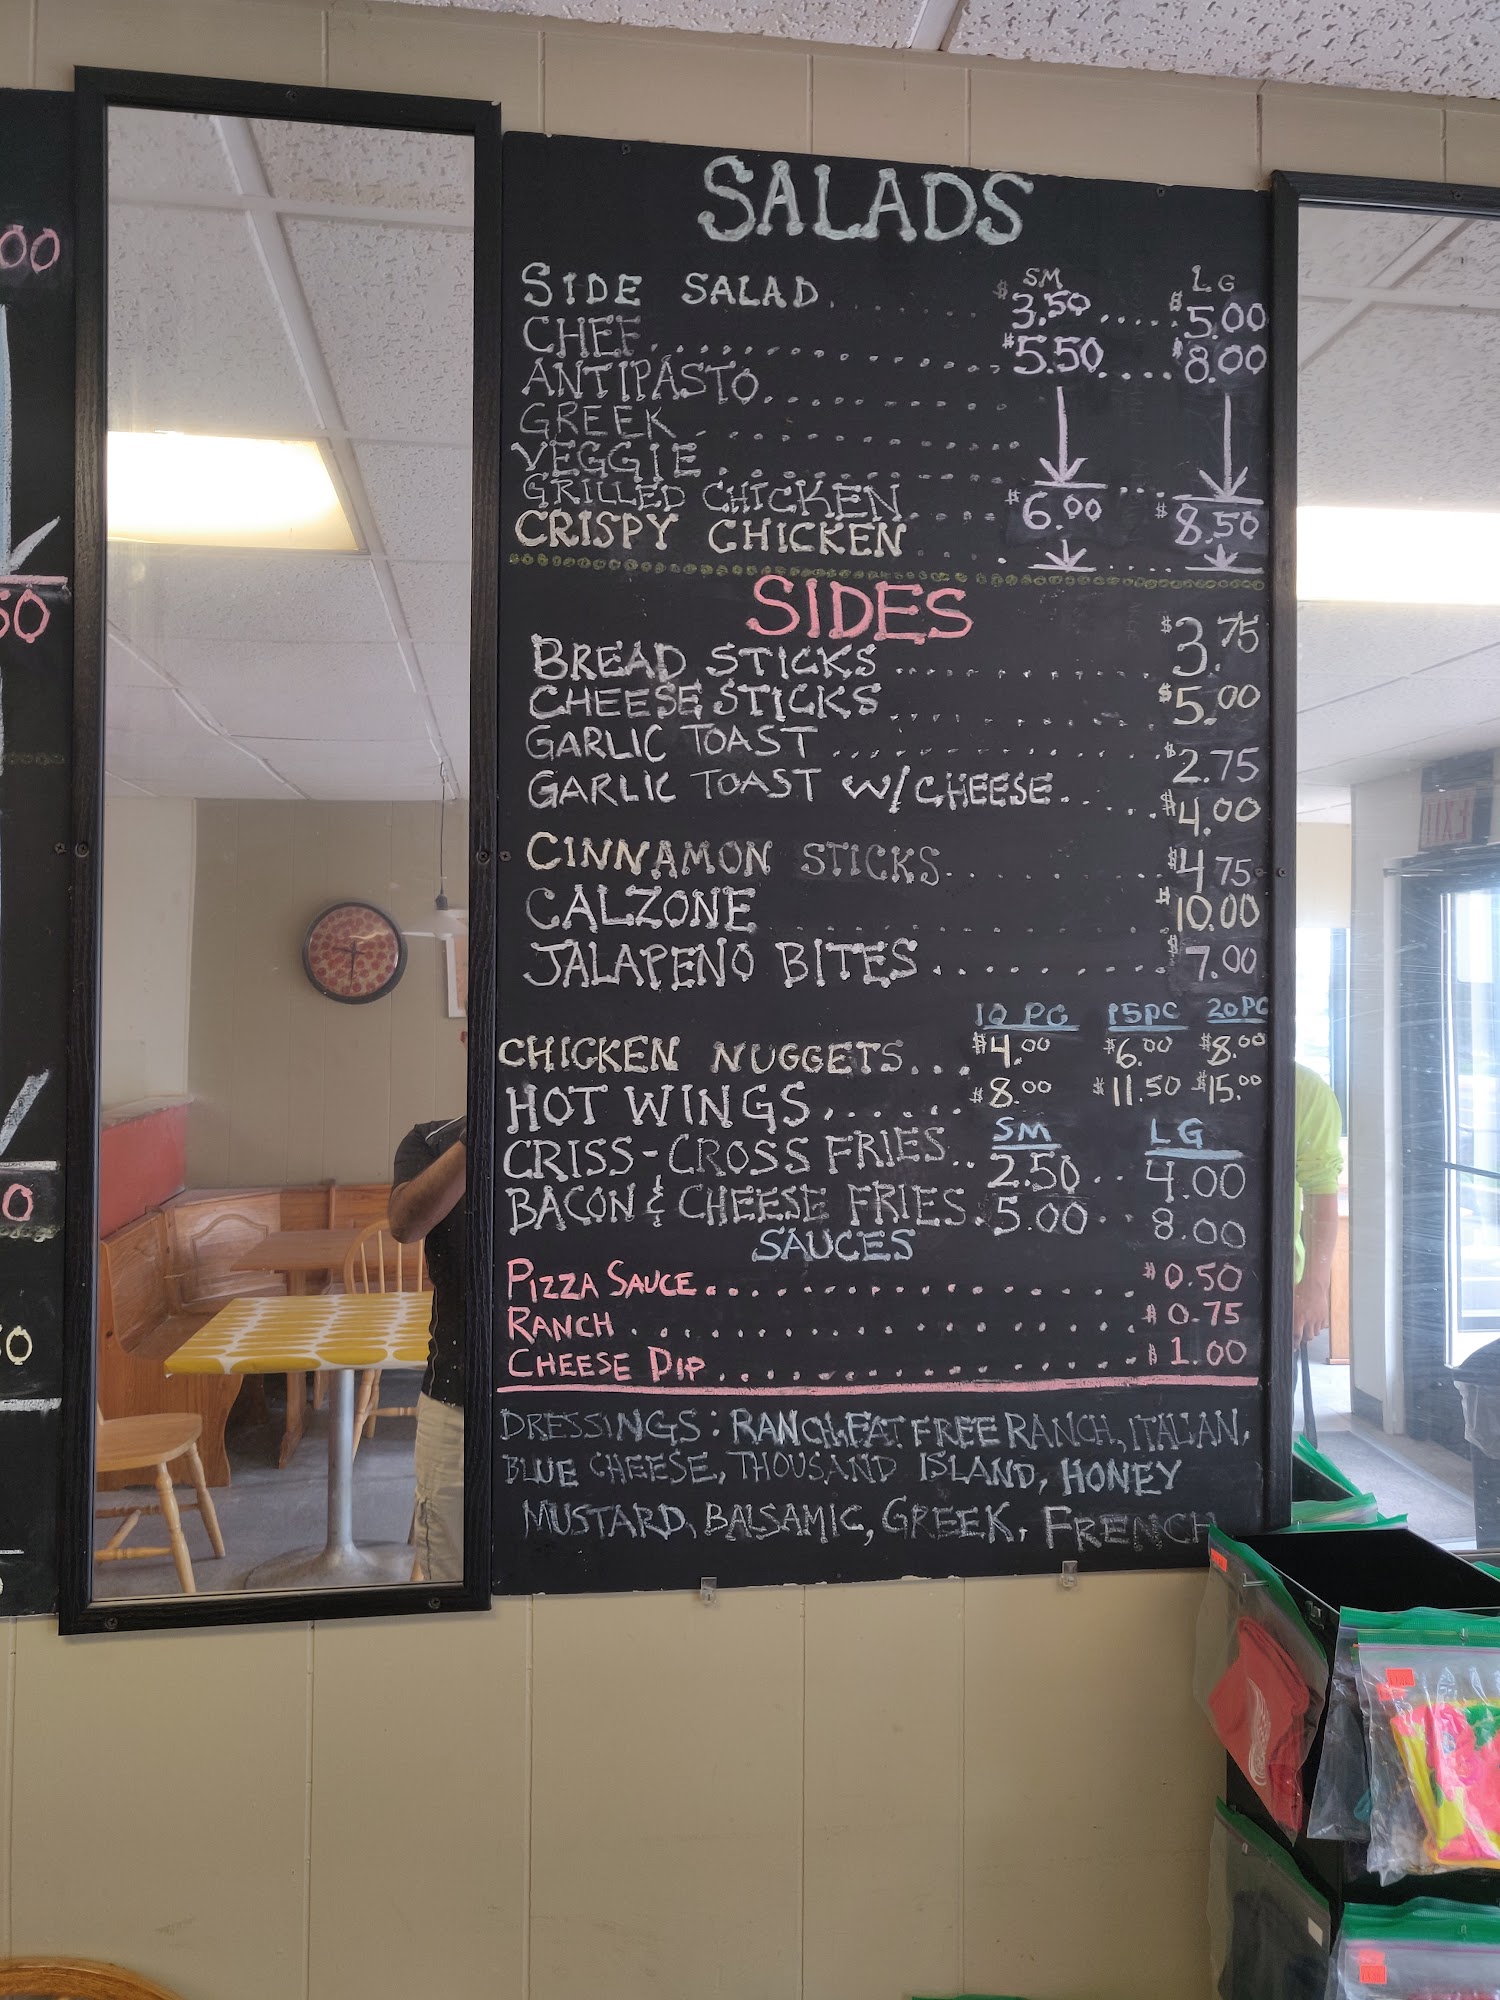 SALADS
SM LG
SIDE SALAD $3.50 $5.00
CHEF $5.50 $8.00
ANTIPASTO
GREEK
VEGGIE
GRILLED CHICKEN $6.00 $8.50
CRISPY CHICKEN
SIDES
BREAD STICKS $3.75
CHEESE STICKS $5.00
GARLIC TOAST $2.75
GARLIC TOAST W/CHEESE $4.00
CINNAMON STICKS $4.75
CALZONE $10.00
JALAPENO BITES $7.00
10 PC 15PC 20PC
CHICKEN NUGGETS $4.00 $6.00 $8.00
HOT WINGS $8.00 $11.50 $15.00
SM LG
CRISS-CROSS FRIES 2.50 4.00
BACON & CHEESE FRIES 5.00 8.00
SAUCES
PIZZA SAUCE $0.50
RANCH $0.75
CHEESE DIP $1.00
DRESSINGS: RANCH, FAT FREE RANCH, ITALIAN,
BLUE CHEESE, THOUSAND ISLAND, HONEY
MUSTARD, BALSAMIC, GREEK, FRENCH
EXIT